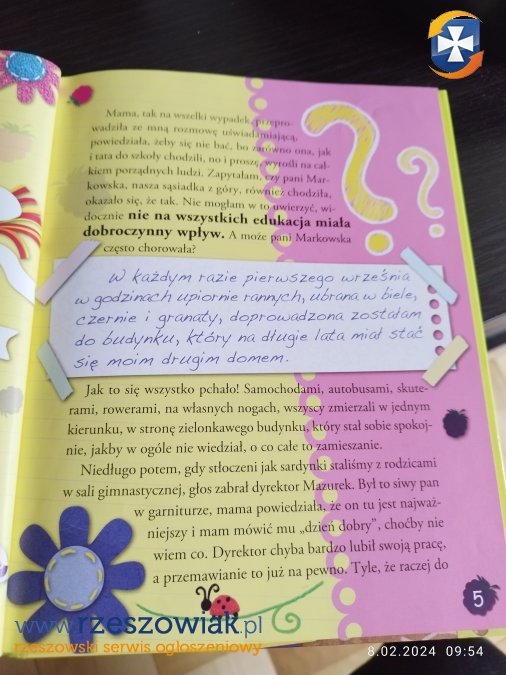 Mama, tak na wszelki wypadek, przepro-
wadziła ze mną rozmowę uświadamiającą,
powiedziała, żeby się nie bać, bo zarówno ona, jak
i tata do szkoły chodzili, no i proszę, wyrośli na cał-
kiem porządnych ludzi. Zapytałam, czy pani Mar-
kowska, nasza sąsiadka z góry, również chodziła,
okazało się, że tak. Nie mogłam w to uwierzyć, wi-
docznie nie na wszystkich edukacja miała
dobroczynny wpływ. A może pani Markowska
często chorowała?
W każdym razie pierwszego września
w godzinach upiornie rannych, ubrana w biele,
czernie i granaty, doprowadzona zostałam
do budynku, który na długie lata miał stać
się moim drugim domem.
Jak to się wszystko pchało! Samochodami, autobusami, skute-
rami, rowerami, na własnych nogach, wszyscy zmierzali w jednym
kierunku, w stronę zielonkawego budynku, który stał sobie spokoj-
nie, jakby w ogóle nie wiedział, o co całe to zamieszanie.
Niedługo potem, gdy stłoczeni jak sardynki staliśmy z rodzicami
w sali gimnastycznej, głos zabrał dyrektor Mazurek. Był to siwy pan
w garniturze, mama powiedziała, że on tu jest najważ-
niejszy i mam mówić mu „dzień dobry”, choćby nie
wiem co. Dyrektor chyba bardzo lubił swoją pracę,
a przemawianie to już na pewno. Tyle, że raczej do
5
www.rzeszowiak.pl
rzeszowski serwis ogłoszeniowy
8.02.2024 09:54